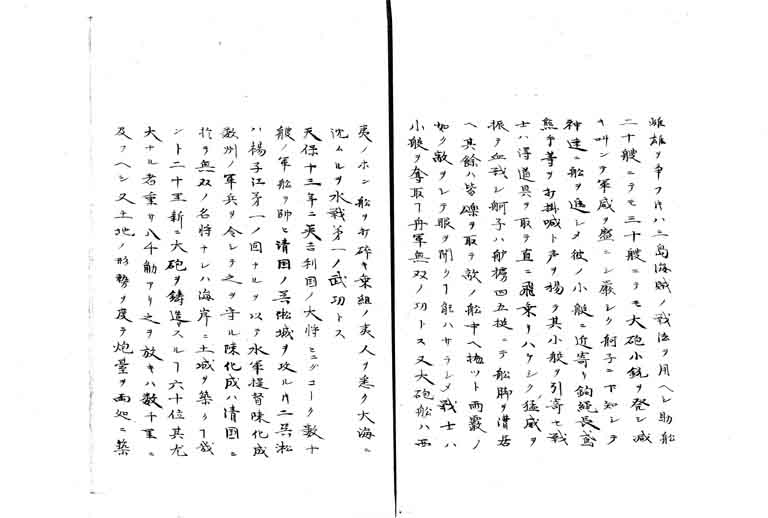 雌雄ヲ争フ片ハ三島海賊ノ戦法ヲ用ヘシ助船
二十艘ニテモ三十艘ニテモ大砲小銃ヲ発シ減
キ叫ンテ軍威ヲ盛ニシ厳シク舸子ニ下知シテ
神速ニ船ヲ進シメ彼ノ小艇ニ近寄リ鉤縄長鳶
熊手等ヲ打掛喊ト声ヲ揚ケ其小船ヲ引寄セ戦
士ハ得道具ヲ取テ直ニ飛乗リハケシク猛威ヲ
振テ血戦シ舸子ハ艪擴四五挺ニテ船脚ヲ滑
ヘ其餘ハ皆礫ヲ取テ敵ノ船中ヘ擲ツト雨霰ノ
如ク敵ヲシテ眼ヲ開クヿ能ハサラシメ戦士ハ
小船ヲ奪取ヿ舟軍無双ノ功トス又大砲船ハ西
夷ノホン船ヲ打碎キ乗組ノ夷人ヲ悉ク大海ニ
沈ムルヲ水戦第一ノ武功トス
天保十三年ニ英吉利国ノ大将ヒニコーク数十
艘ノ軍船ヲ帥ヒ清国ノ呉淞城ヲ攻ル片ニ呉淞
ハ揚子江第一ノ固ナルヲ以テ水軍提督陳化成
数州ノ軍兵ヲ令シテ之ヲ守ル陳化成ハ清国ニ
於テ無双ノ名将ナレハ海岸ニ土城ヲ築クヿ幾
ント二十里新ニ大砲ヲ鋳造スルヿ六十位其尤
大ナル者重サ八千觔アリ之ヲ放キハ数千里ニ
及フヘシ又土地ノ形勢ヲ度テ炮臺ヲ両処ニ築